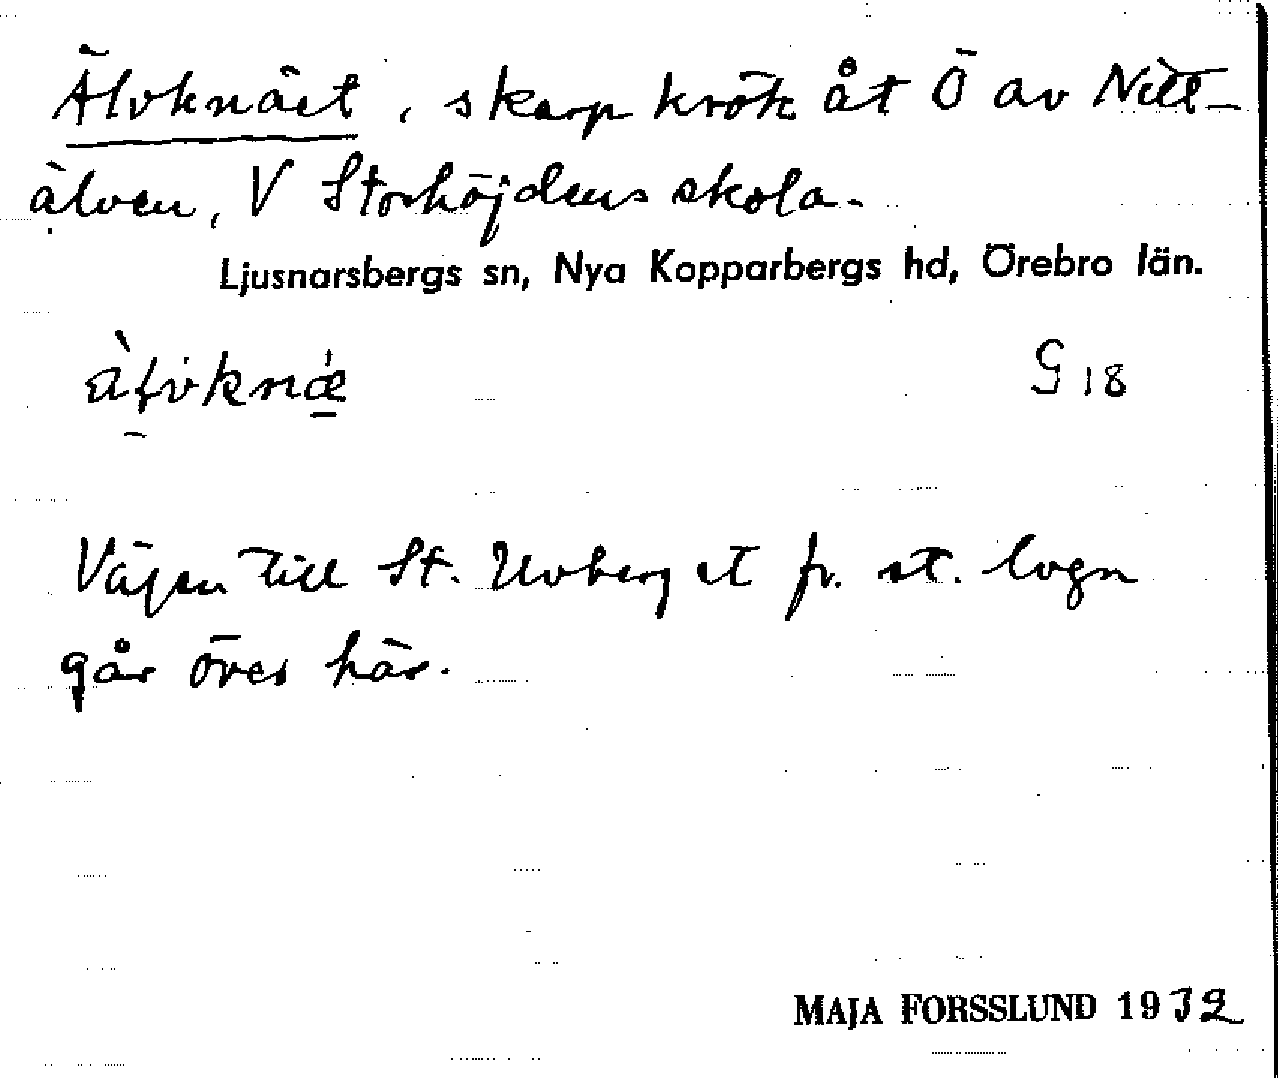 Älvknäet, skarp krök åt Ö av Nitt-
älven, V Storhöjdens skola.
Ljusnarsbergs sn, Nya Kopparbergs hd, Örebro län.
G 18
Vägen till St. Uvberget fr. st. Lugn
går över här.
MAJA FORSSLUND 1932